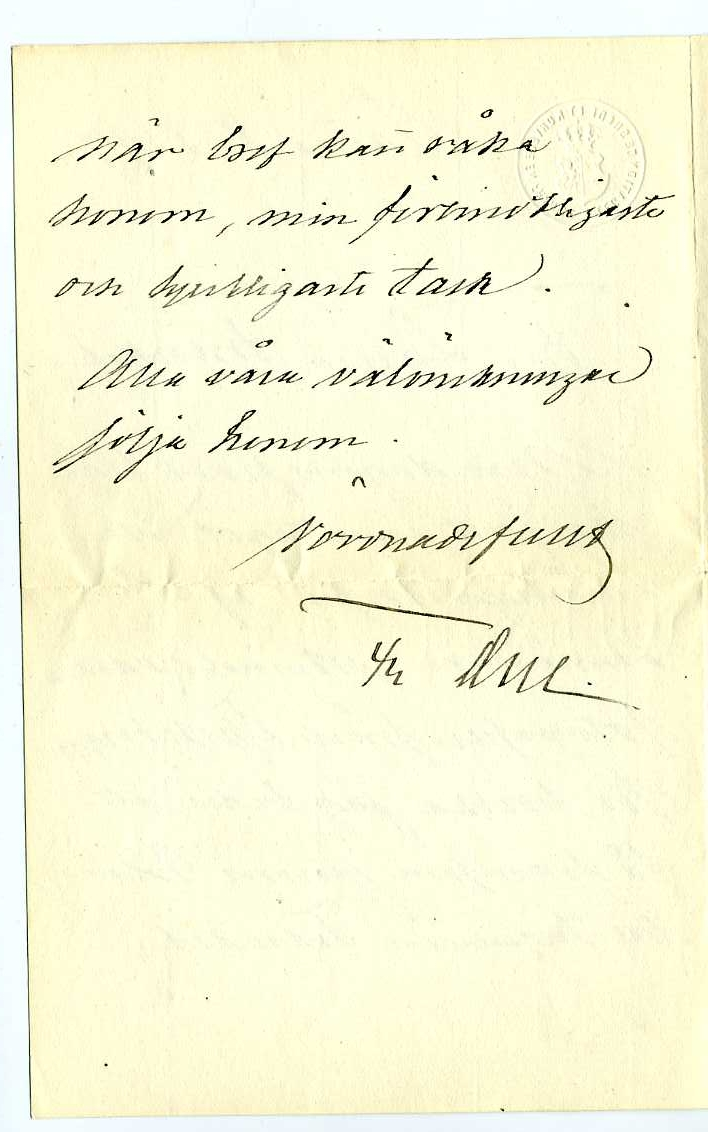 när bref kan råka
honom, min förbindtligaste
och hjertligaste tack.
Alla våra välönskningar
följa honom.
Vörnadsfullt